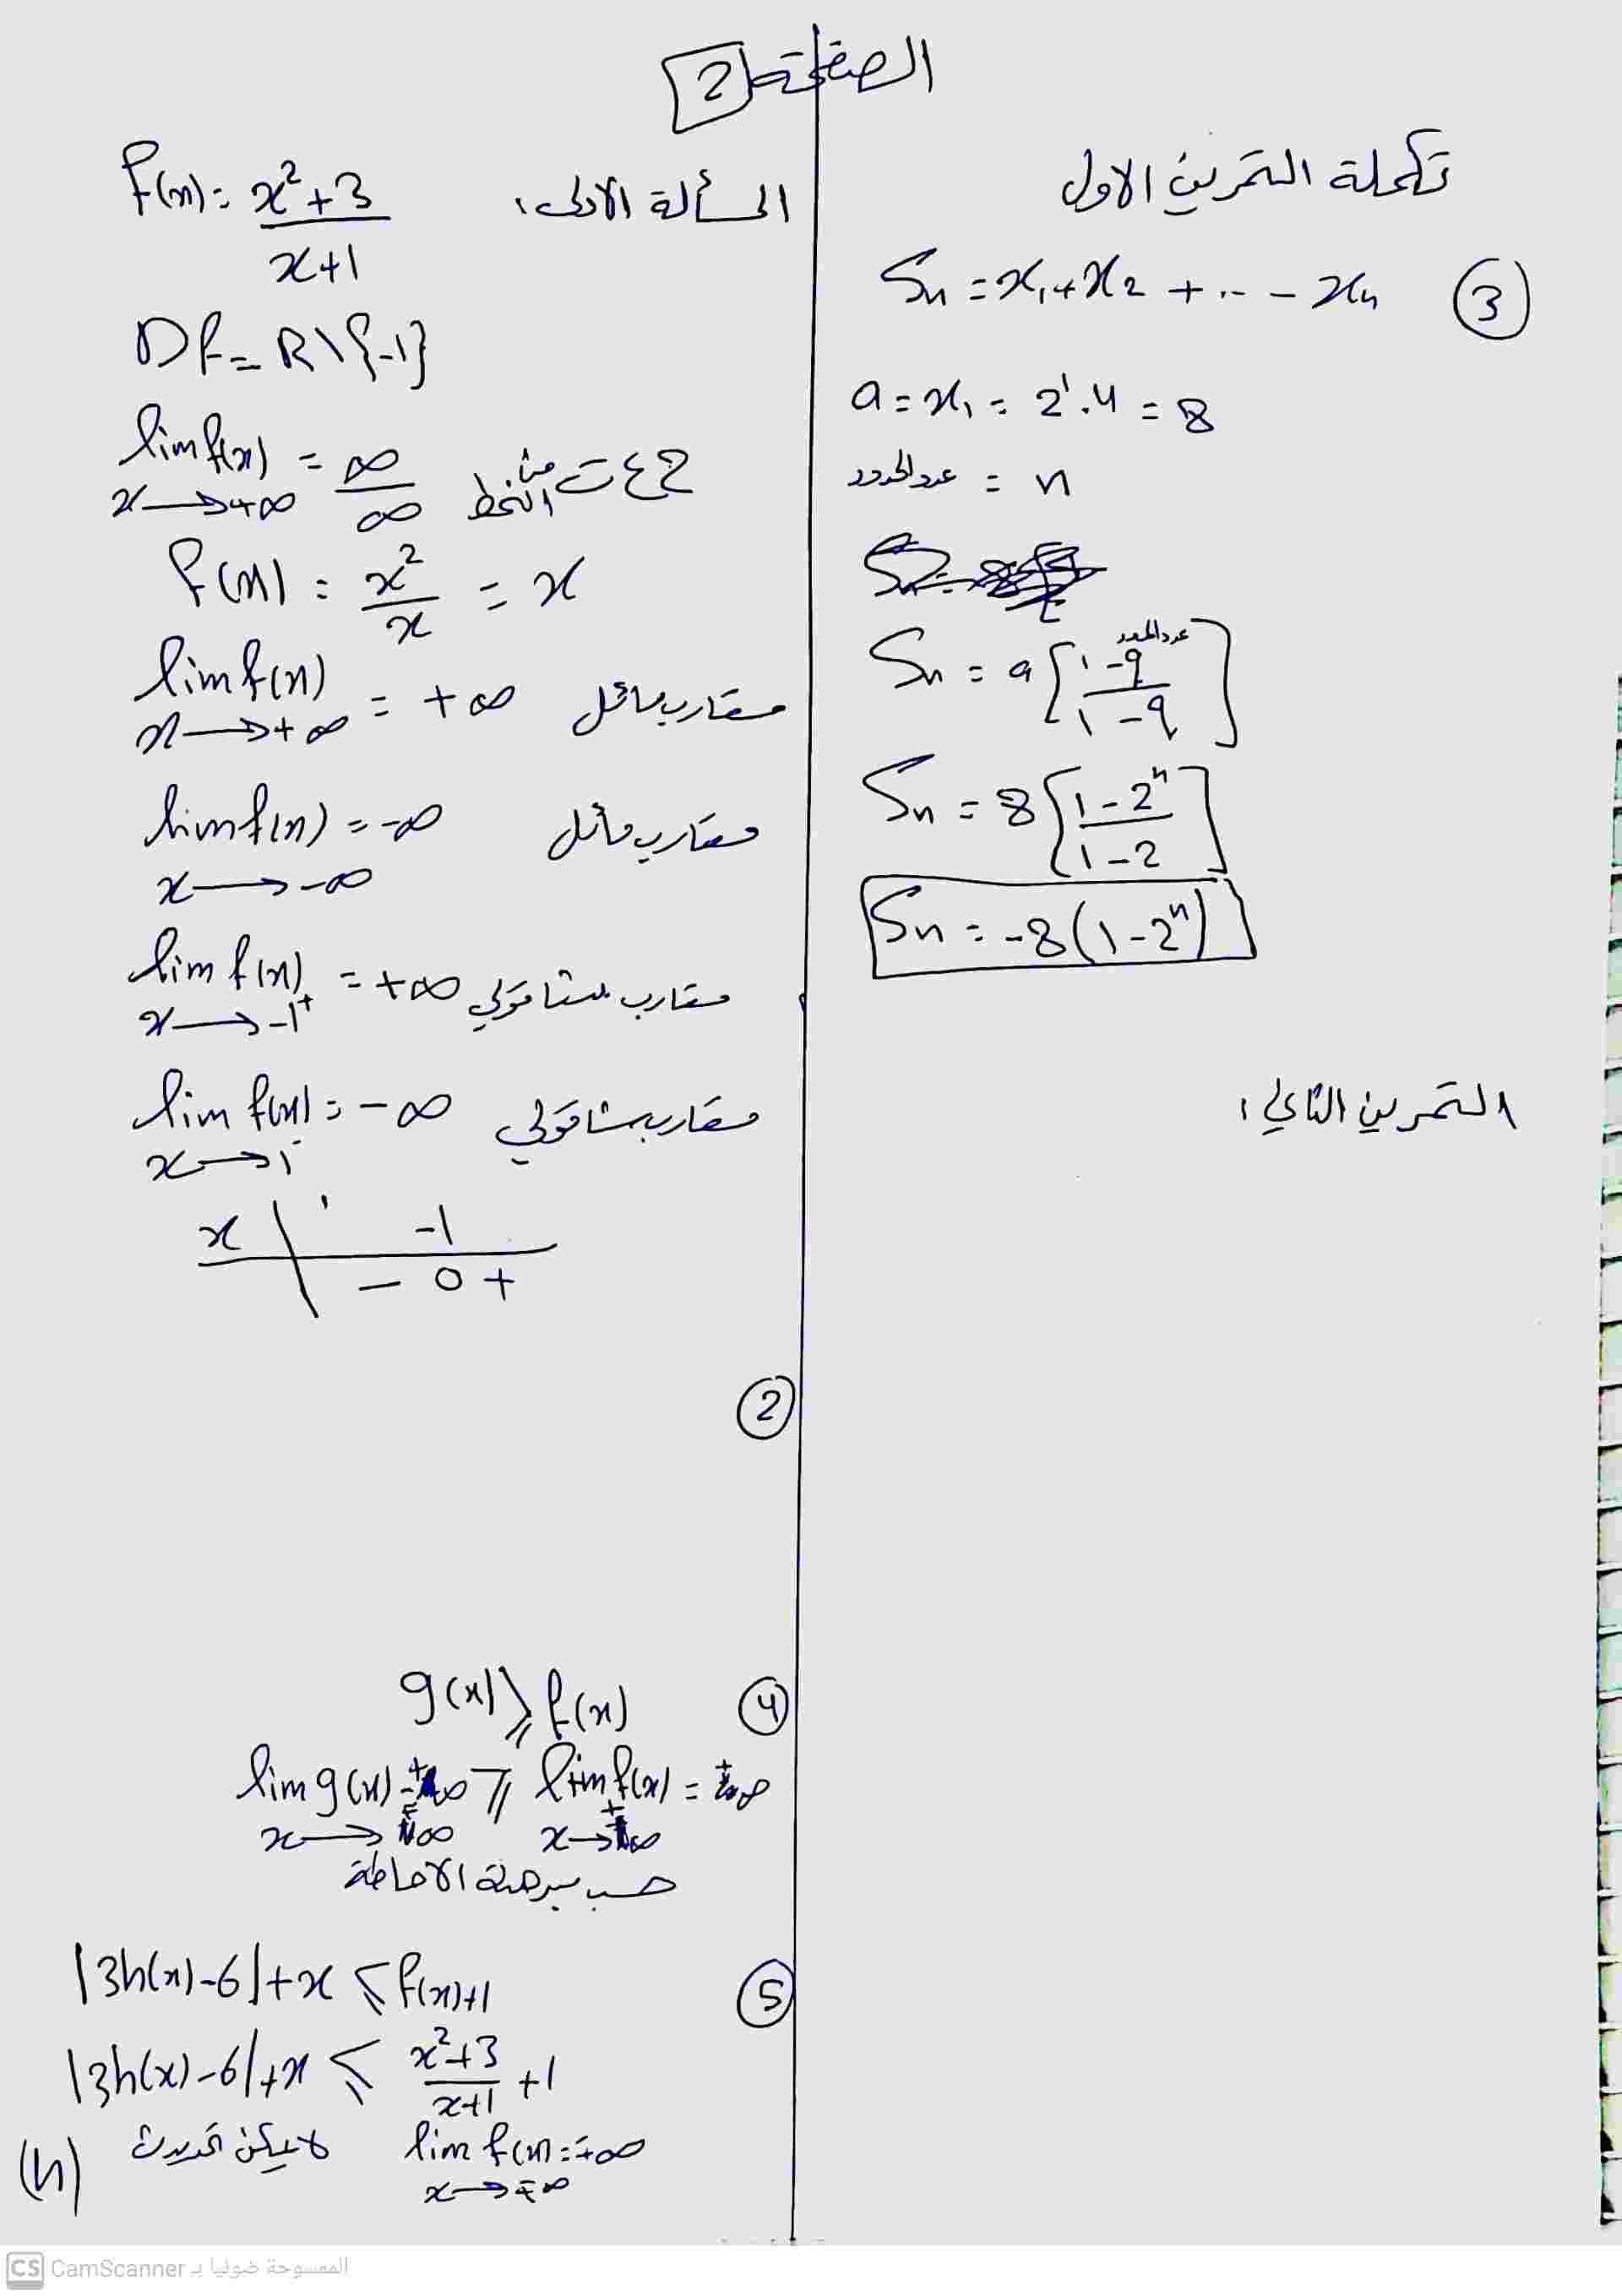 الصفحة 2
تكملة التمرين الاول
③ Sn = x₁ + x₂ + .. - xn
a = x₁ = 2¹.4 = 8
عدد الحدود = n
Sn = a [1-q^عدد الحدود / 1-q]
Sn = 8 [1-2ⁿ / 1-2]
Sn = -8(1-2ⁿ)
التمرين الثاني:
المسألة الاولى: f(x) = x²+3 / x+1
Df = R\{-1}
lim f(x) = ∞/∞ ح ع ت من النمط
x→+∞
f(x) = x²/x = x
lim f(x) = +∞ مقارب مائل
x→+∞
lim f(x) = -∞ مقارب مائل
x→-∞
lim f(x) = +∞ مقارب شاقولي
x→-1⁺
lim f(x) = -∞ مقارب شاقولي
x→1⁻
x | -1
- 0 +
②
④ g(x) ⩾ f(x)
lim g(x) = +∞ ⩾ lim f(x) = +∞
x→+∞ x→+∞
حسب مبرهنة الاحاطة
⑤ |3h(x)-6|+x ⩽ f(x)+1
|3h(x)-6|+x ⩽ x²+3 / x+1 +1
lim f(x) = +∞ لا يمكن تحديد (h)
x→+∞
CS CamScanner الممسوحة ضوئيا بـ